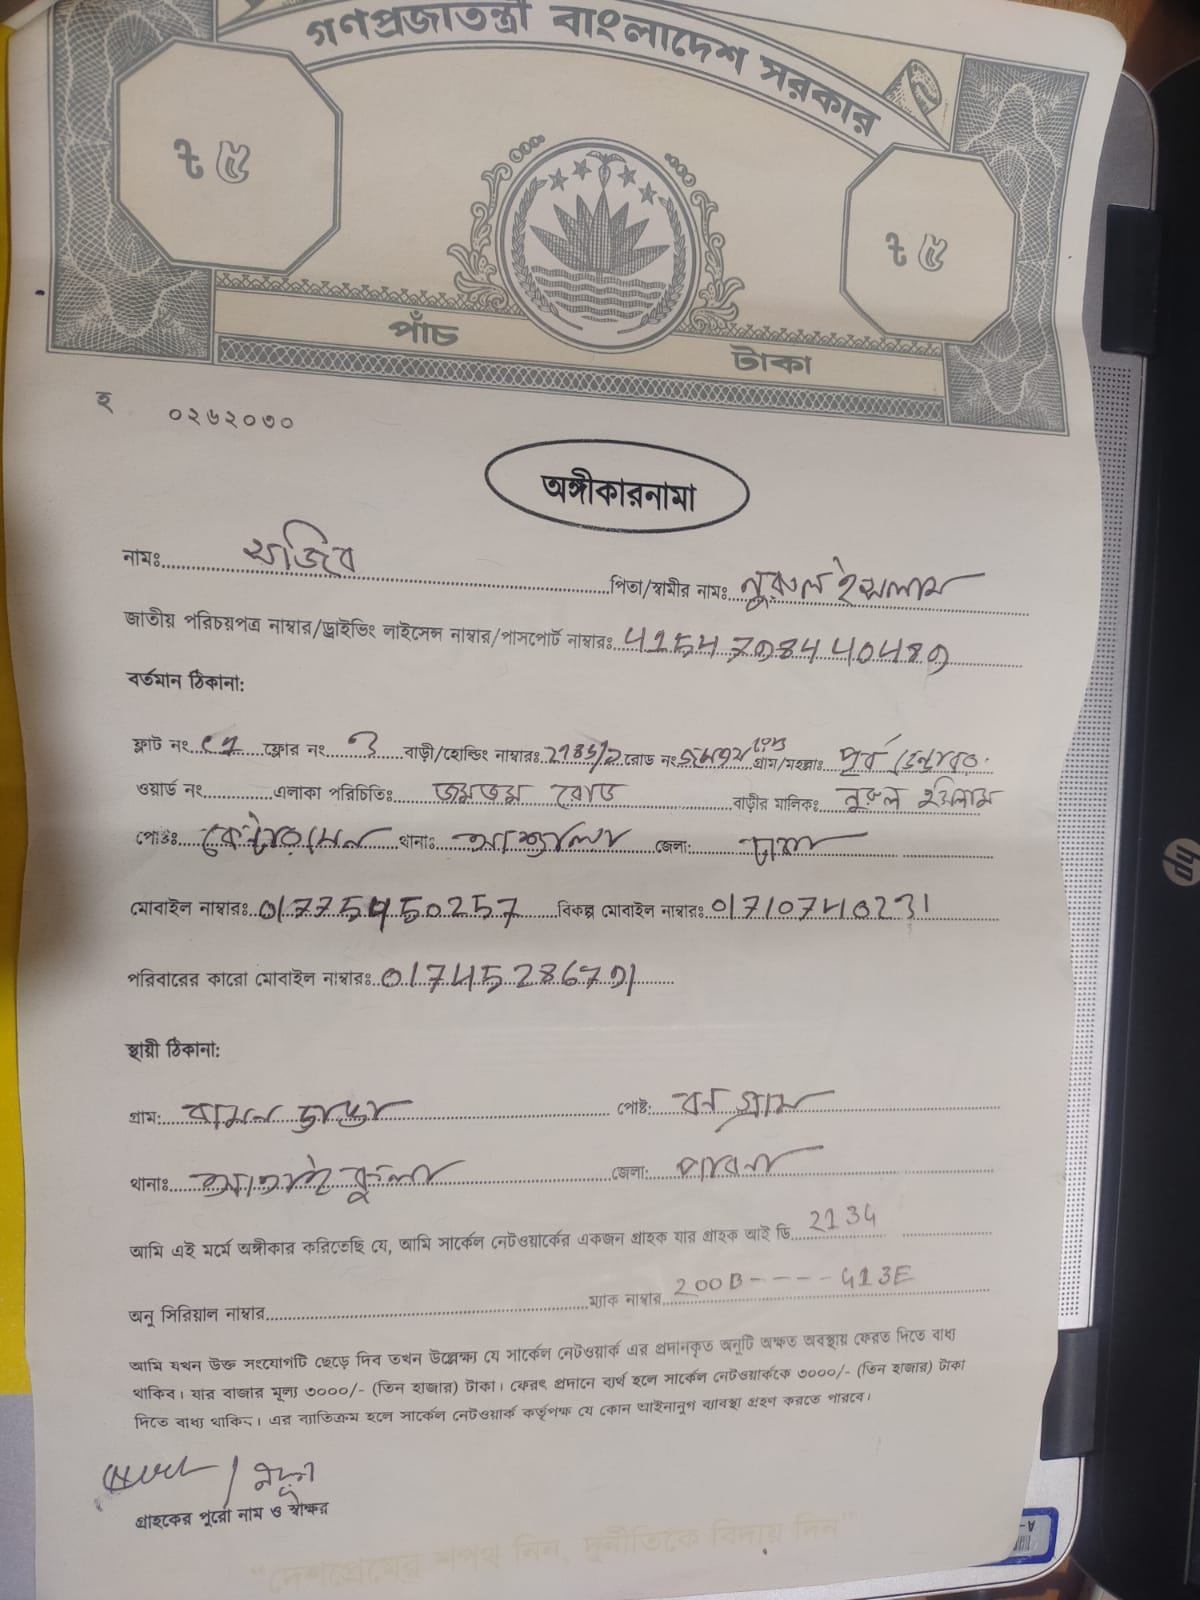 গণপ্রজাতন্ত্রী বাংলাদেশ সরকার
৳ ৫
৳ ৫
পাঁচ টাকা
হ ০২৬২০৩০
অঙ্গীকারনামা
নামঃ সজিব পিতা/স্বামীর নামঃ নুরুল ইসলাম
জাতীয় পরিচয়পত্র নাম্বার/ড্রাইভিং লাইসেন্স নাম্বার/পাসপোর্ট নাম্বারঃ
বর্তমান ঠিকানা:
ফ্লাট নং ফ্লোর নং 3 বাড়ী/হোল্ডিং নাম্বারঃ রোড নং গ্রাম/মহল্লাঃ পূর্ব
ওয়ার্ড নং এলাকা পরিচিতিঃ জমজম রোড বাড়ীর মালিকঃ নুরুল ইসলাম
পোষ্টঃ থানাঃ আশুলিয়া জেলা: ঢাকা
মোবাইল নাম্বারঃ 01775450257 বিকল্প মোবাইল নাম্বারঃ 01710740231
পরিবারের কারো মোবাইল নাম্বারঃ
স্থায়ী ঠিকানা:
গ্রাম: বামন ডাঙ্গা পোষ্ট: বনগ্রাম
থানাঃ আতাইকুলা জেলা: পাবনা
আমি এই মর্মে অঙ্গীকার করিতেছি যে, আমি সার্কেল নেটওয়ার্কের একজন গ্রাহক যার গ্রাহক আই ডি 2134
অনু সিরিয়াল নাম্বার ম্যাক নাম্বার 200B----413E
আমি যখন উক্ত সংযোগটি ছেড়ে দিব তখন উল্লেক্ষা যে সার্কেল নেটওয়ার্ক এর প্রদানকৃত অনুটি অক্ষত অবস্থায় ফেরত দিতে বাধ্য
থাকিব। যার বাজার মূল্য ৩০০০/- (তিন হাজার) টাকা। ফেরৎ প্রদানে ব্যর্থ হলে সার্কেল নেটওয়ার্ককে ৩০০০/- (তিন হাজার) টাকা
দিতে বাধ্য থাকিব। এর ব্যাতিক্রম হলে সার্কেল নেটওয়ার্ক কর্তৃপক্ষ যে কোন আইনানুগ ব্যাবস্থা গ্রহণ করতে পারবে।
গ্রাহকের পুরো নাম ও স্বাক্ষর
"দেশপ্রেমের শপথ নিন, দুর্নীতিকে বিদায় দিন"